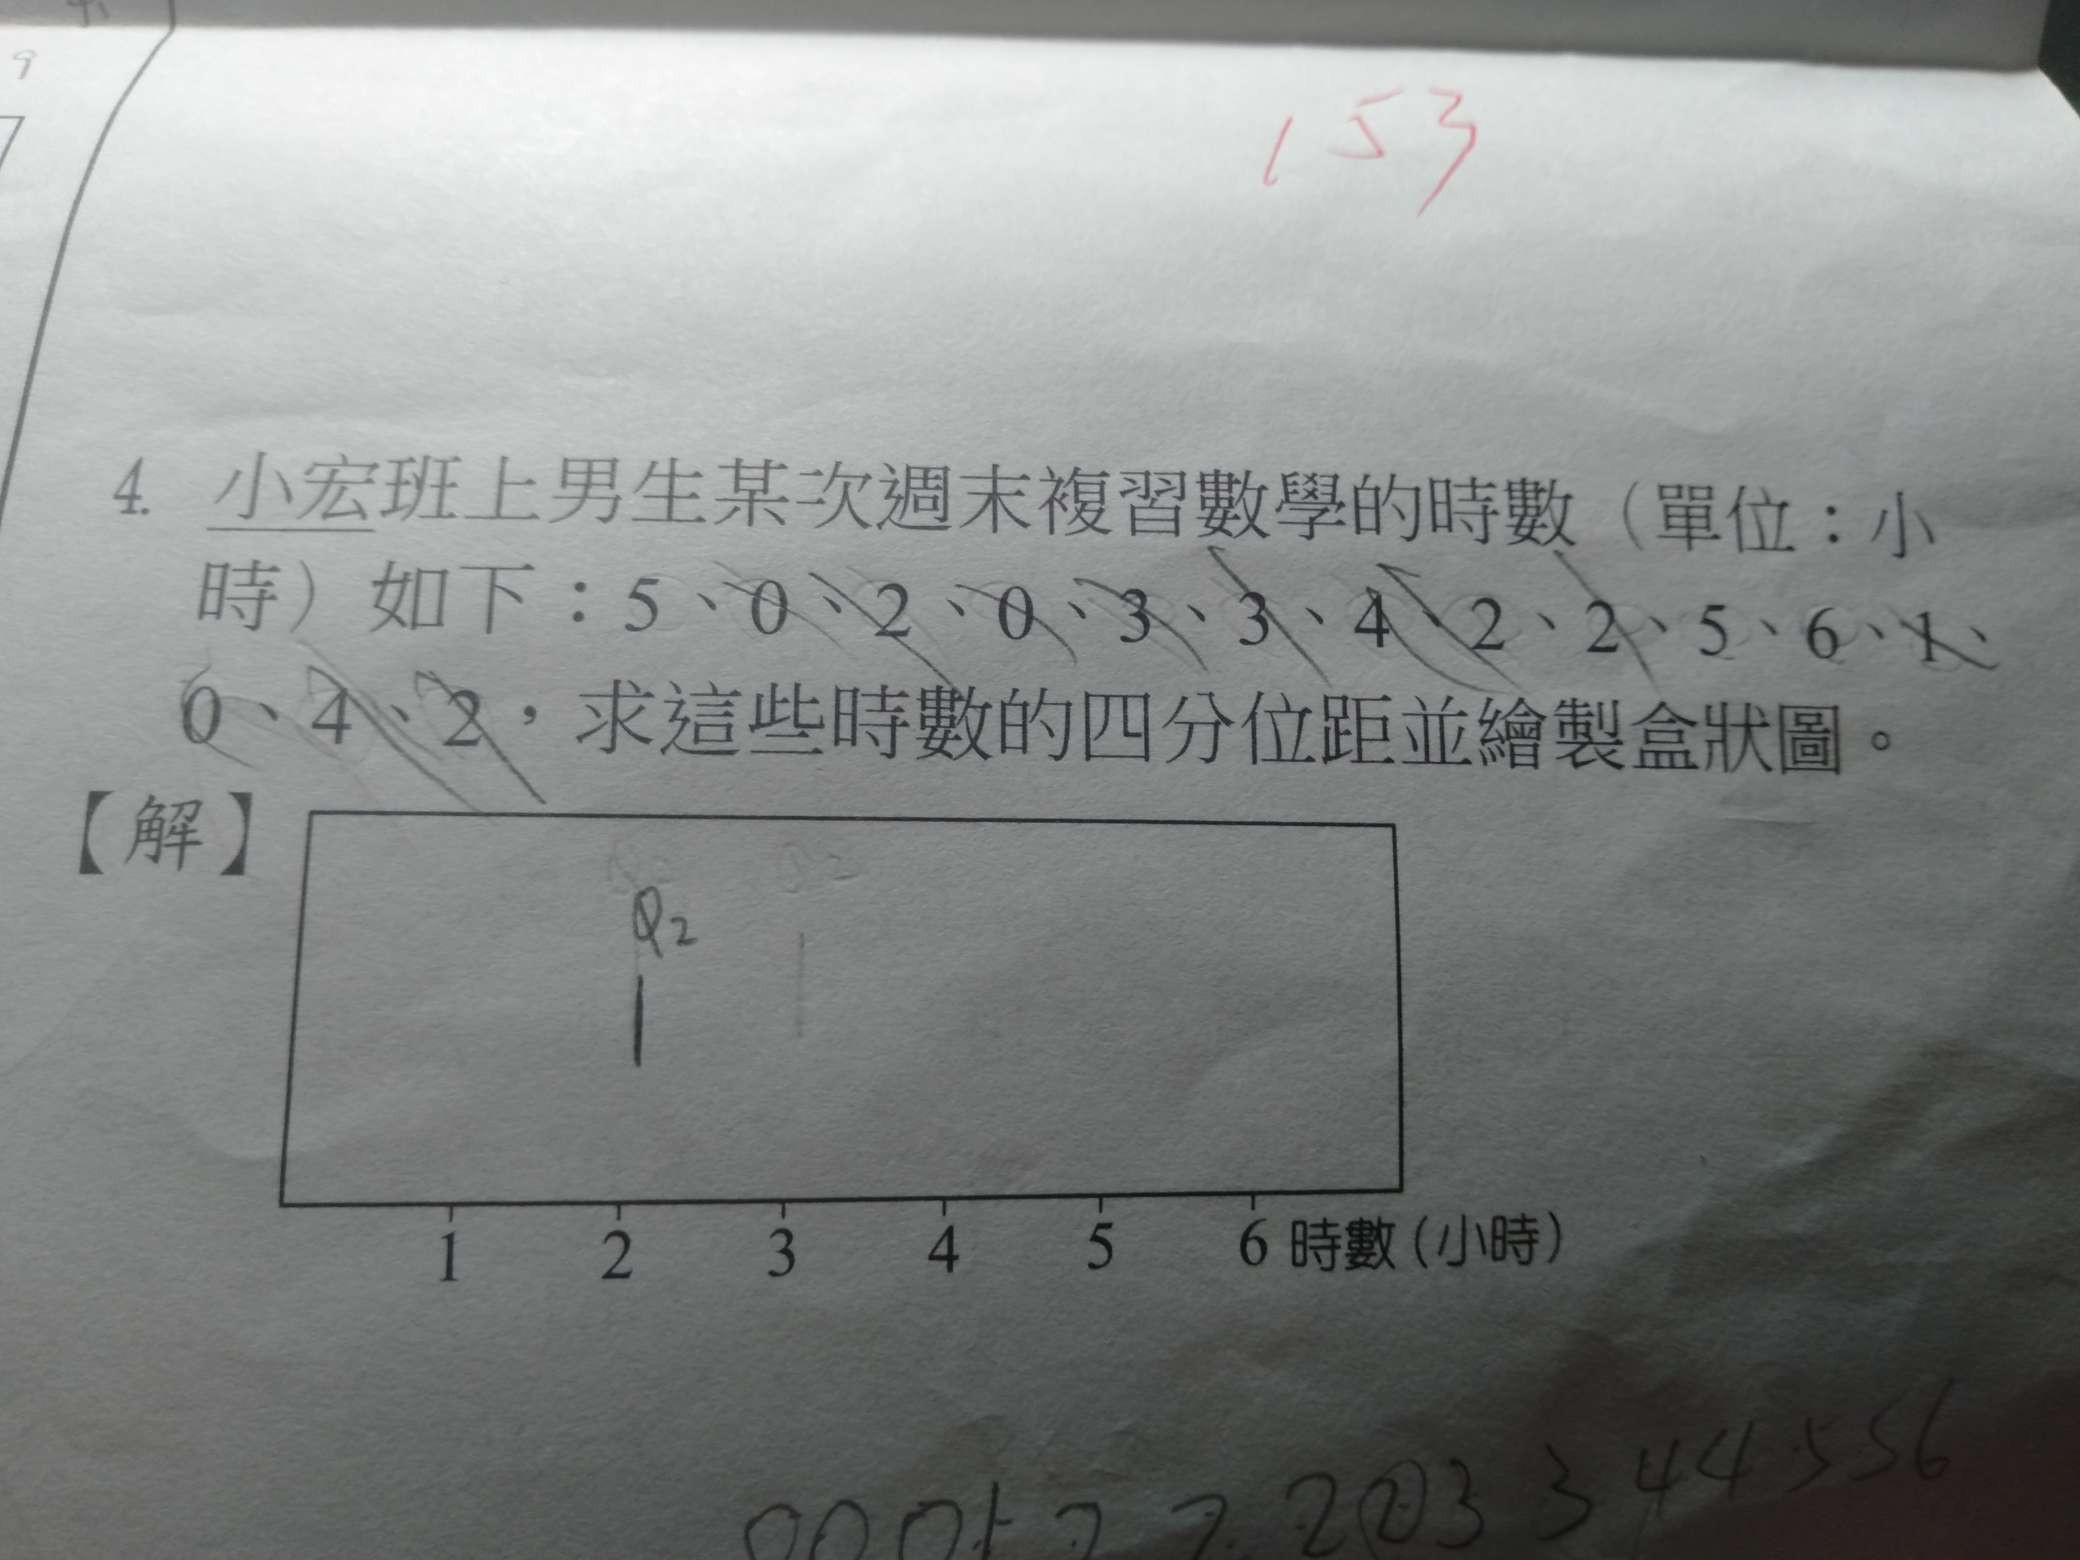 9
153
4. 小宏班上男生某次週末複習數學的時數（單位：小
時）如下：5、0、2、0、3、3、4、2、2、5、6、1、
0、4、2，求這些時數的四分位距並繪製盒狀圖。
【解】
Q2
1 2 3 4 5 6 時數(小時)
0001222233344556